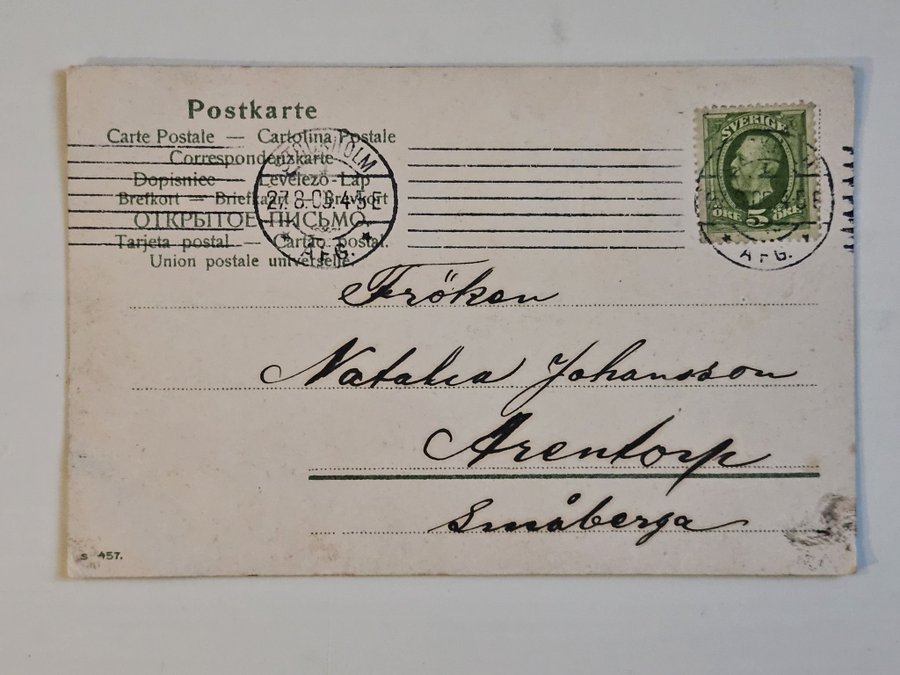 Postkarte
Carte Postale — Cartolina Postale
Correspondenzkarte
Dopisnice — Levelező-Lap
Brefkort — Briefkaart — Brevkort
ОТКРЫТОЕ ПИСЬМО.
Tarjeta postal — Cartão postal.
Union postale universelle.
STOCKHOLM
27.8.03.4-5E
AFG.
SVERIGE
ÖRE 5 ÖRE
AFG.
Fröken
Natalia Johansson
Arentorp
Småberga
S 457.